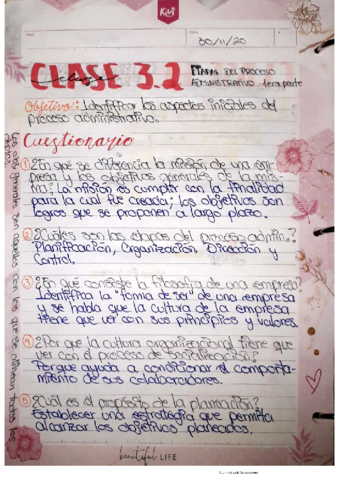 Kiut
30/11/20
CLASE 3.2
clase
ETAPAS DEL PROCESO
ADMINISTRATIVO - 1era parte
Objetivo: Identificar los aspectos iniciales del
proceso administrativo.
Cuestionario
① ¿En qué se diferencia la misión de una em-
presa y los objetivos generales de la mis-
ma? La misión es cumplir con la finalidad
para la cual fue creada; los objetivos son
logros que se proponen a largo plazo.
② ¿Cuáles son las etapas del proceso admin.?
Planificación, Organización, Dirección y
Control.
③ ¿En qué consiste la filosofía de una empresa?
Identifica la "forma de ser" de una empresa
y se habla que la cultura de la empresa
tiene que ver con sus principios y valores.
④ ¿Por qué la cultura organizacional tiene que
ver con el proceso de socialización?
Porque ayuda a condicionar el comporta-
miento de sus colaboradores.
⑤ ¿Cuál es el propósito de la planeación?
Establecer una estrategia que permita
alcanzar los objetivos planeados.
beautiful LIFE